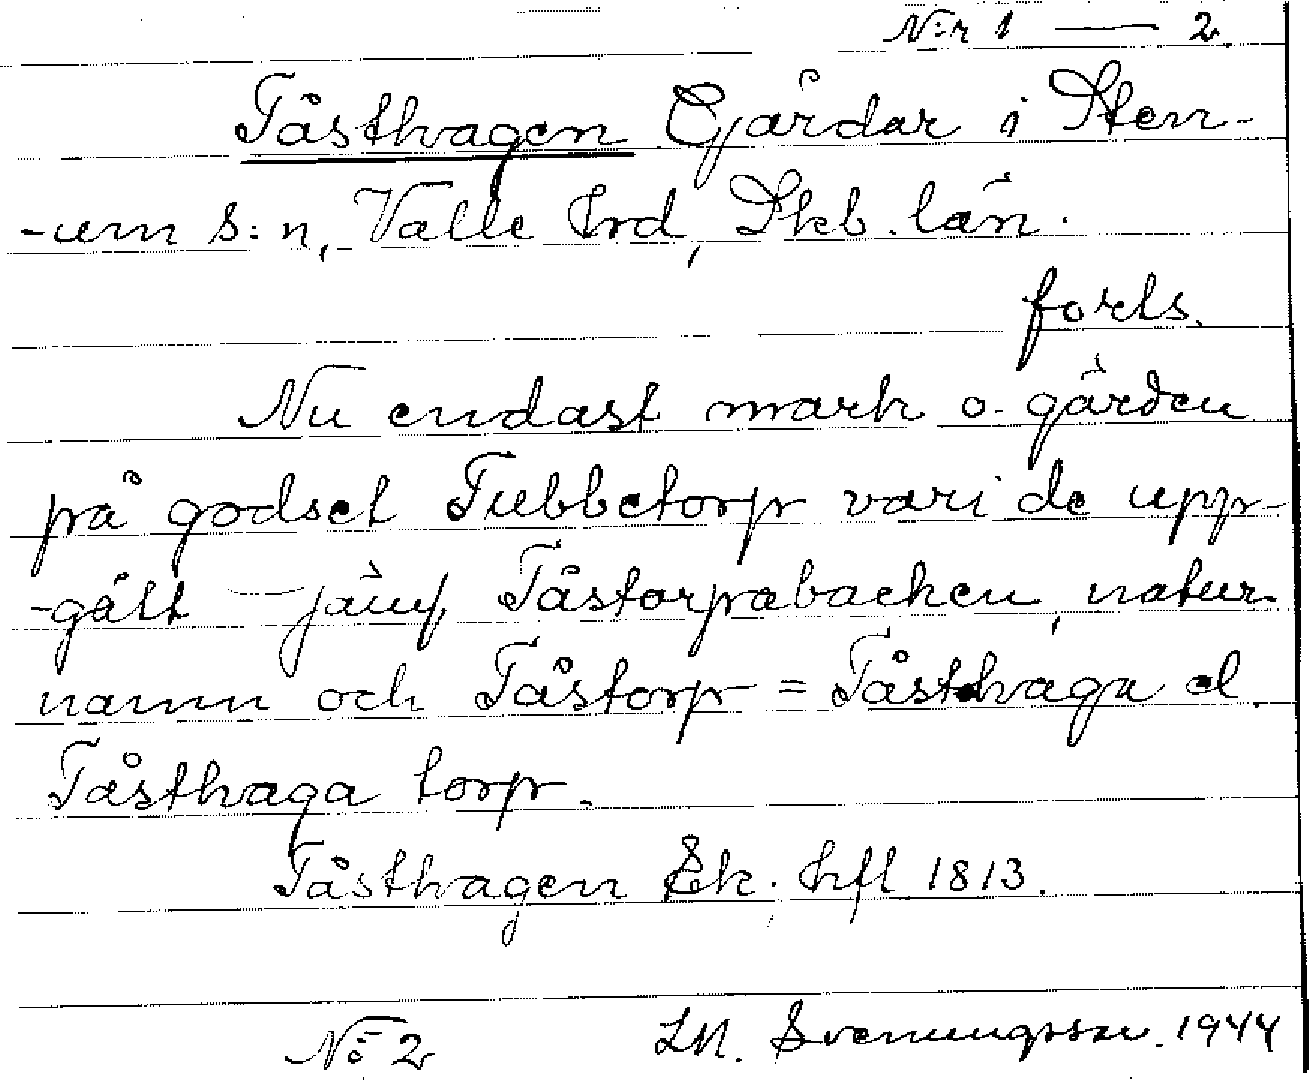 N:r 1 — 2
Tåsthagen Gårdar i Sten-
-um s:n, Valle hrd, Skb. län.
forts.
Nu endast mark o. gärden
på godset Tubbetorp vari de upp-
-gått – jämf. Tåstorpabacken, natur-
namn och Tåstorp = Tåsthaga el.
Tåsthaga torp.
Tåsthagen Ek. hfl 1813.
No 2 LM. Svenungsson. 1944